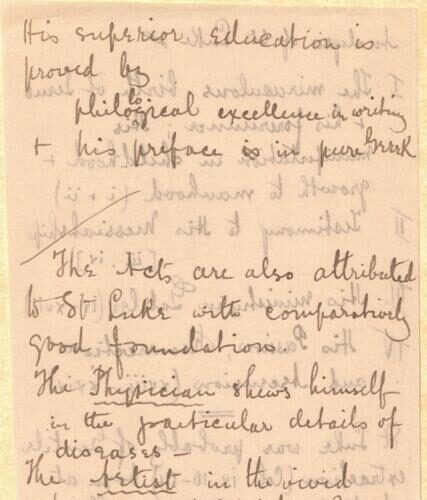 His superior education is
proved by
philological excellence in writing
+ his preface is in pure Greek
The Acts are also attributed
to St Luke with comparatively
good foundation
The Physician shews himself
in the particular details of
diseases —
The Artist in the vivid